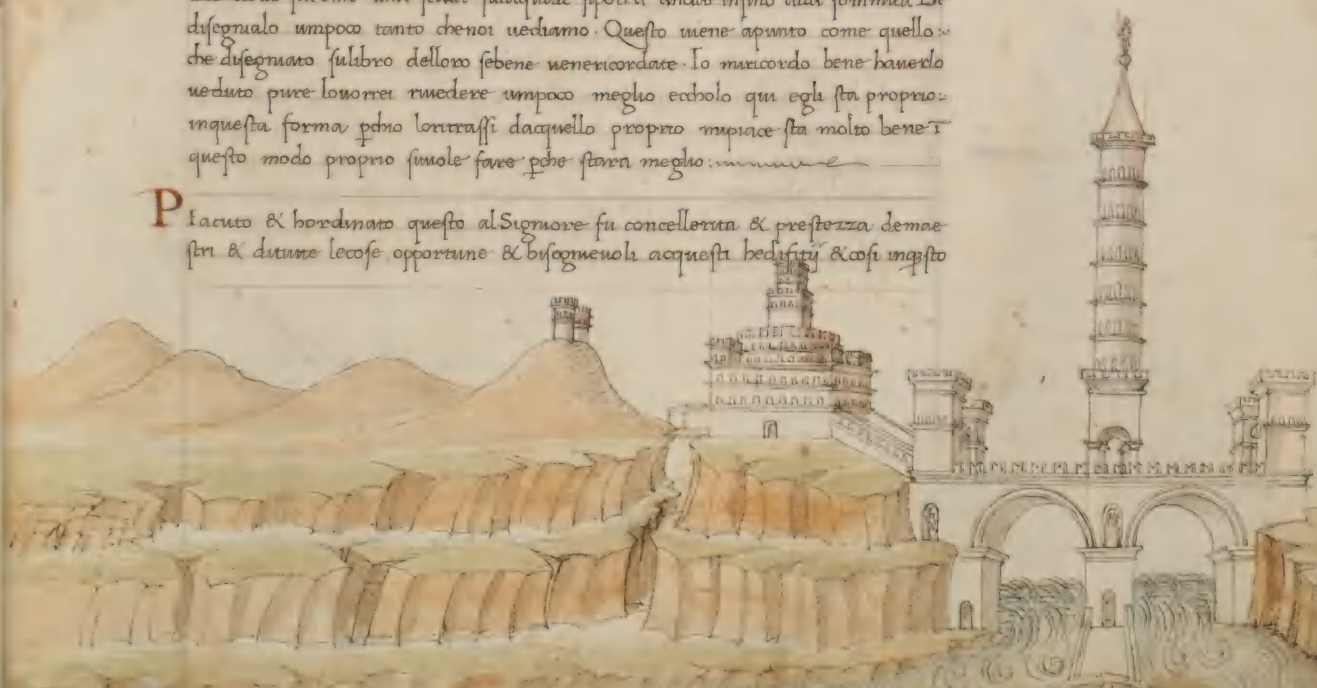 disegnialo umpoco tanto chenoi uediamo · Questo uiene apunto come quello:~
che disegniato sulibro delloro sebene uenericordate · Io miricordo bene hauerlo
ueduto pure louorrei riuedere umpoco meglio eccholo qui egli sta proprio:~
inquesta forma pchio loritrassi dacquello proprio mipiace sta molto bene ī
questo modo proprio siuole fare pche stara meglio:
Piaciuto & hordinato questo al Signore fu concellerita & prestezza demae
stri & ditutte lecose opportune & bisogneuoli acquesti hedifitij & cosi inqsto